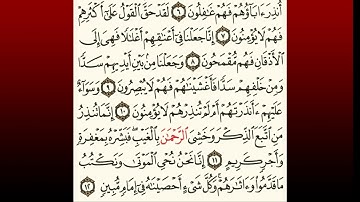 أُنذِرَ ءَابَآؤُهُمْ فَهُمْ غَٰفِلُونَ ٦ لَقَدْ حَقَّ ٱلْقَوْلُ عَلَىٰٓ أَكْثَرِهِمْ
فَهُمْ لَا يُؤْمِنُونَ ٧ إِنَّا جَعَلْنَا فِىٓ أَعْنَٰقِهِمْ أَغْلَٰلًا فَهِىَ إِلَى
ٱلْأَذْقَانِ فَهُم مُّقْمَحُونَ ٨ وَجَعَلْنَا مِنۢ بَيْنِ أَيْدِيهِمْ سَدًّا
وَمِنْ خَلْفِهِمْ سَدًّا فَأَغْشَيْنَٰهُمْ فَهُمْ لَا يُبْصِرُونَ ٩ وَسَوَآءٌ
عَلَيْهِمْ ءَأَنذَرْتَهُمْ أَمْ لَمْ تُنذِرْهُمْ لَا يُؤْمِنُونَ ١٠ إِنَّمَا تُنذِرُ
مَنِ ٱتَّبَعَ ٱلذِّكْرَ وَخَشِىَ ٱلرَّحْمَٰنَ بِٱلْغَيْبِ فَبَشِّرْهُ بِمَغْفِرَةٍ
وَأَجْرٍ كَرِيمٍ ١١ إِنَّا نَحْنُ نُحْىِ ٱلْمَوْتَىٰ وَنَكْتُبُ
مَا قَدَّمُوا۟ وَءَاثَٰرَهُمْ وَكُلَّ شَىْءٍ أَحْصَيْنَٰهُ فِىٓ إِمَامٍ مُّبِينٍ ١٢